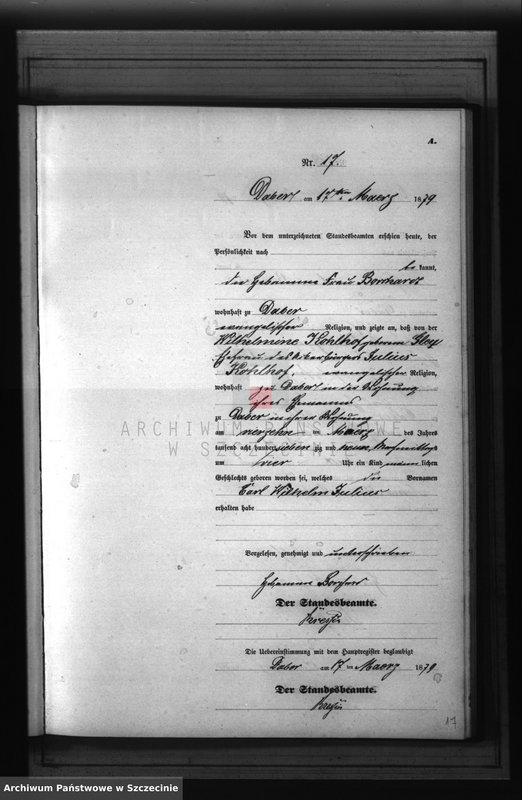 A.
Nr. 17.
Daber am 17ten Maerz 1879
Vor dem unterzeichneten Standesbeamten erschien heute, der
Persönlichkeit nach
be kannt,
die Hebamme Frau Borchardt
wohnhaft zu Daber
evangelischer Religion, und zeigte an, daß von der
Wilhelmine Kohlhof geborenen
Ehefrau des Ackerbürgers Julius
Kohlhof, evangelischer Religion,
wohnhaft zu Daber in der Wohnung
ihres Ehemannes
zu Daber in ihrer Wohnung
am vierzehn ten Maerz des Jahres
tausend acht hundert sieben zig und neun, Nachmittags
um vier Uhr ein Kind männ lichen
Geschlechts geboren worden sei, welches die Vornamen
Carl Wilhelm Julius
erhalten habe
Vorgelesen, genehmigt und unterschrieben
Hebamme
Der Standesbeamte.
Die Uebereinstimmung mit dem Hauptregister beglaubigt
Daber am 17 ten Maerz 1879
Der Standesbeamte.
17
ARCHIWUM PAŃSTWOWE
W SZCZECINIE
Archiwum Państwowe w Szczecinie